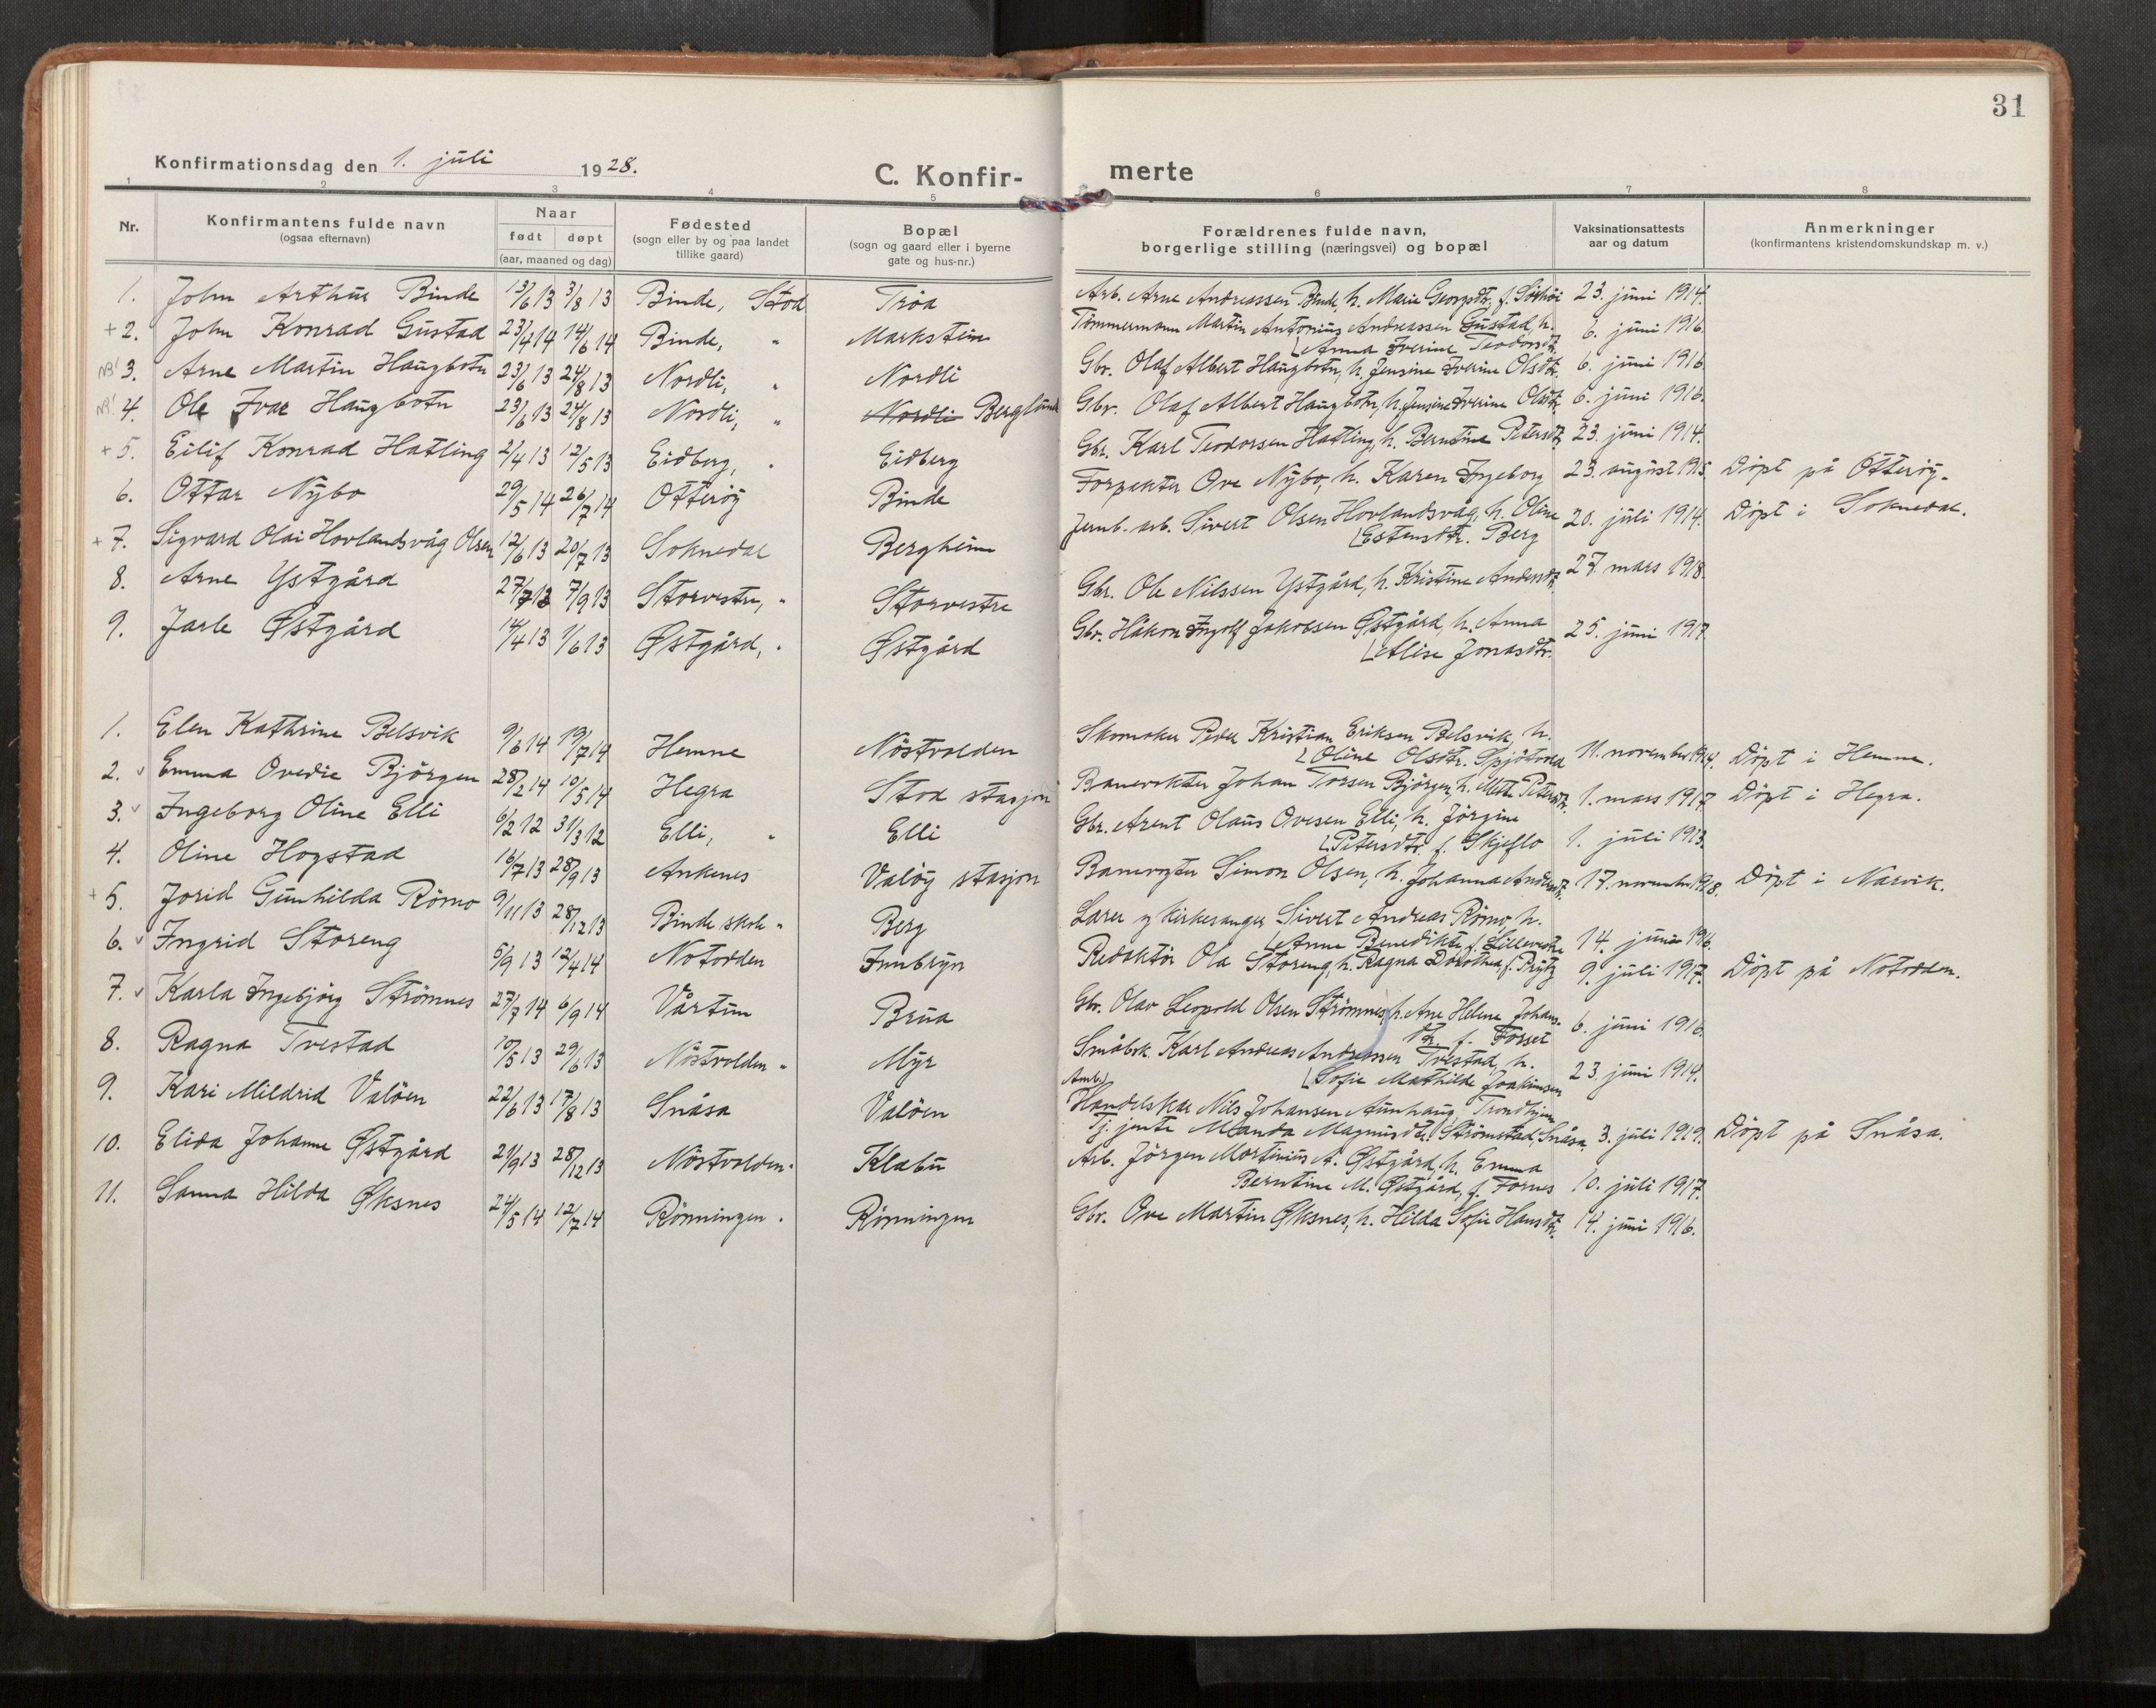 31
Konfirmationsdag den 1. juli 1928.
C. Konfir- merte
1 2 3 4 5 6 7 8
Nr. Konfirmantens fulde navn (ogsaa efternavn) Naar født døpt (aar, maaned og dag) Fødested (sogn eller by og paa landet tillike gaard) Bopæl (sogn og gaard eller i byerne gate og hus-nr.) Forældrenes fulde navn, borgerlige stilling (næringsvei) og bopæl Vaksinationsattests aar og datum Anmerkninger (konfirmantens kristendomskundskap m. v.)
1. John Arthur Binde 13/6 13 3/8 13 Binde, Stod Trøa Arb. Arne Andreassen Binde, h. Marie Georgsdtr. f. 23. juni 1914.
+ 2. John Konrad Gustad 23/4 14 14/6 14 Binde, " Markstein Tömmermann Martin Antonius Andreassen Gustad, h. 6. juni 1916.
Anna Iverine Teodorsdtr.
NB! 3. Arne Martin Haugbotn 23/6 13 24/8 13 Nordli, " Nordli Gbr. Olaf Albert Haugbotn, h. Jensine Iverine Olsdtr. 6. juni 1916.
NB! 4. Ole Ivar Haugbotn 23/6 13 24/8 13 Nordli, " Nordli Berglund Gbr. Olaf Albert Haugbotn, h. Jensine Iverine Olsdtr. 6. juni 1916.
+ 5. Eilif Konrad Hatling 2/4 13 12/5 13 Eidberg, " Eidberg Gbr. Karl Teodorsen Hatling, h. Berntine Petersdtr. 23. juni 1914.
6. Ottar Nybo 29/5 14 26/7 14 Otteröy Binde Forpakter Ove Nybo, h. Karen Ingeborg 23. august 1915. Döpt på Otteröy.
+ 7. Sigvard Olai Hovlandsvåg Olsen 12/6 13 20/7 13 Soknedal Bergheim Jernb. arb. Sivert Olsen Hovlandsvåg, h. Oline 20. juli 1914. Döpt i Soknedal.
Estensdtr. Berg
8. Arne Ystgård 27/7 13 7/9 13 Storvestre, " Storvestre Gbr. Ole Nilssen Ystgård, h. Kristine Andersdtr. 27. mars 1918.
9. Jarle Østgård 14/4 13 1/6 13 Østgård, " Østgård Gbr. Håkon Ingolf Jakobsen Østgård, h. Anna 25. juni 1917
Alise Jonasdtr.
1. Elen Kathrine Belsvik 9/6 14 19/7 14 Hemne Nöstvolden Skomaker Peder Kristian Eriksen Belsvik, h. 11. november 1914. Döpt i Hemne.
Oline Olsdtr.
2. v Emma Ovedie Bjørgen 28/2 14 10/5 14 Hegra Stod stasjon Banevokter Johan Tossen Bjørgen, h. Mette Petersdtr. 1. mars 1917 Döpt i Hegra.
3. v Ingeborg Oline Elli 6/2 12 31/3 12 Elli, " Elli Gbr. Arent Olaus Ovesen Elli, h. Jörgine 1. juli 1913.
Petersdtr. f. Skjeflo
4. Oline Hogstad 16/7 13 28/9 13 Ankenes Valöy stasjon Banevogter Simon Olsen, h. Johanna Andersdtr. 17. november 1918. Döpt i Narvik.
+ 5. Jorid Gunhilda Römo 9/11 13 28/12 13 Binde skole " Berg Lærer og kirkesanger Sivert Andreas Römo, h. 14. juni 1916.
Anne Benedikte f. Lillevestre
6. v Ingrid Storeng 5/9 13 12/4 14 Notodden Innbryn Redaktör Ola Storeng, h. Ragna Dorothea, f. Prytz 9. juli 1917. Döpt på Notodden.
7. v Karla Ingebjörg Strömnes 27/7 14 6/9 14 Vårtun Brua Gbr. Olav Leopold Olsen Strömnes, h. Ane Helene Johans- 6. juni 1916.
dtr. f. Fosset
8. Ragna Tvestad 10/5 13 29/6 13 Nöstvolden " Myr Småbrk. Karl Andreas Andreassen Tvestad, h. 23. juni 1914.
Sofie Mathilde Joakimsen
9. Kari Mildrid Valöen 22/6 13 17/8 13 Snåsa Valöen Handelskar Nils Johansen Aunhaug, Trondhjem
Tj. jente Manda Magnusdtr. Strömstad, Snåsa 3. juli 1919. Döpt på Snåsa.
10. Elida Johanne Østgård 21/9 13 28/12 13 Nöstvolden " Klebu Arb. Jörgen Mortinius A. Østgård, h. Emma
Berntine M. Østgård, f. Fornes 10. juli 1917.
11. Sanna Hilda Øksnes 24/5 14 12/7 14 Rönningen " Rönningen Gbr. Ove Martin Øksnes, h. Hilda Sofie Hansdtr. 14. juni 1916.